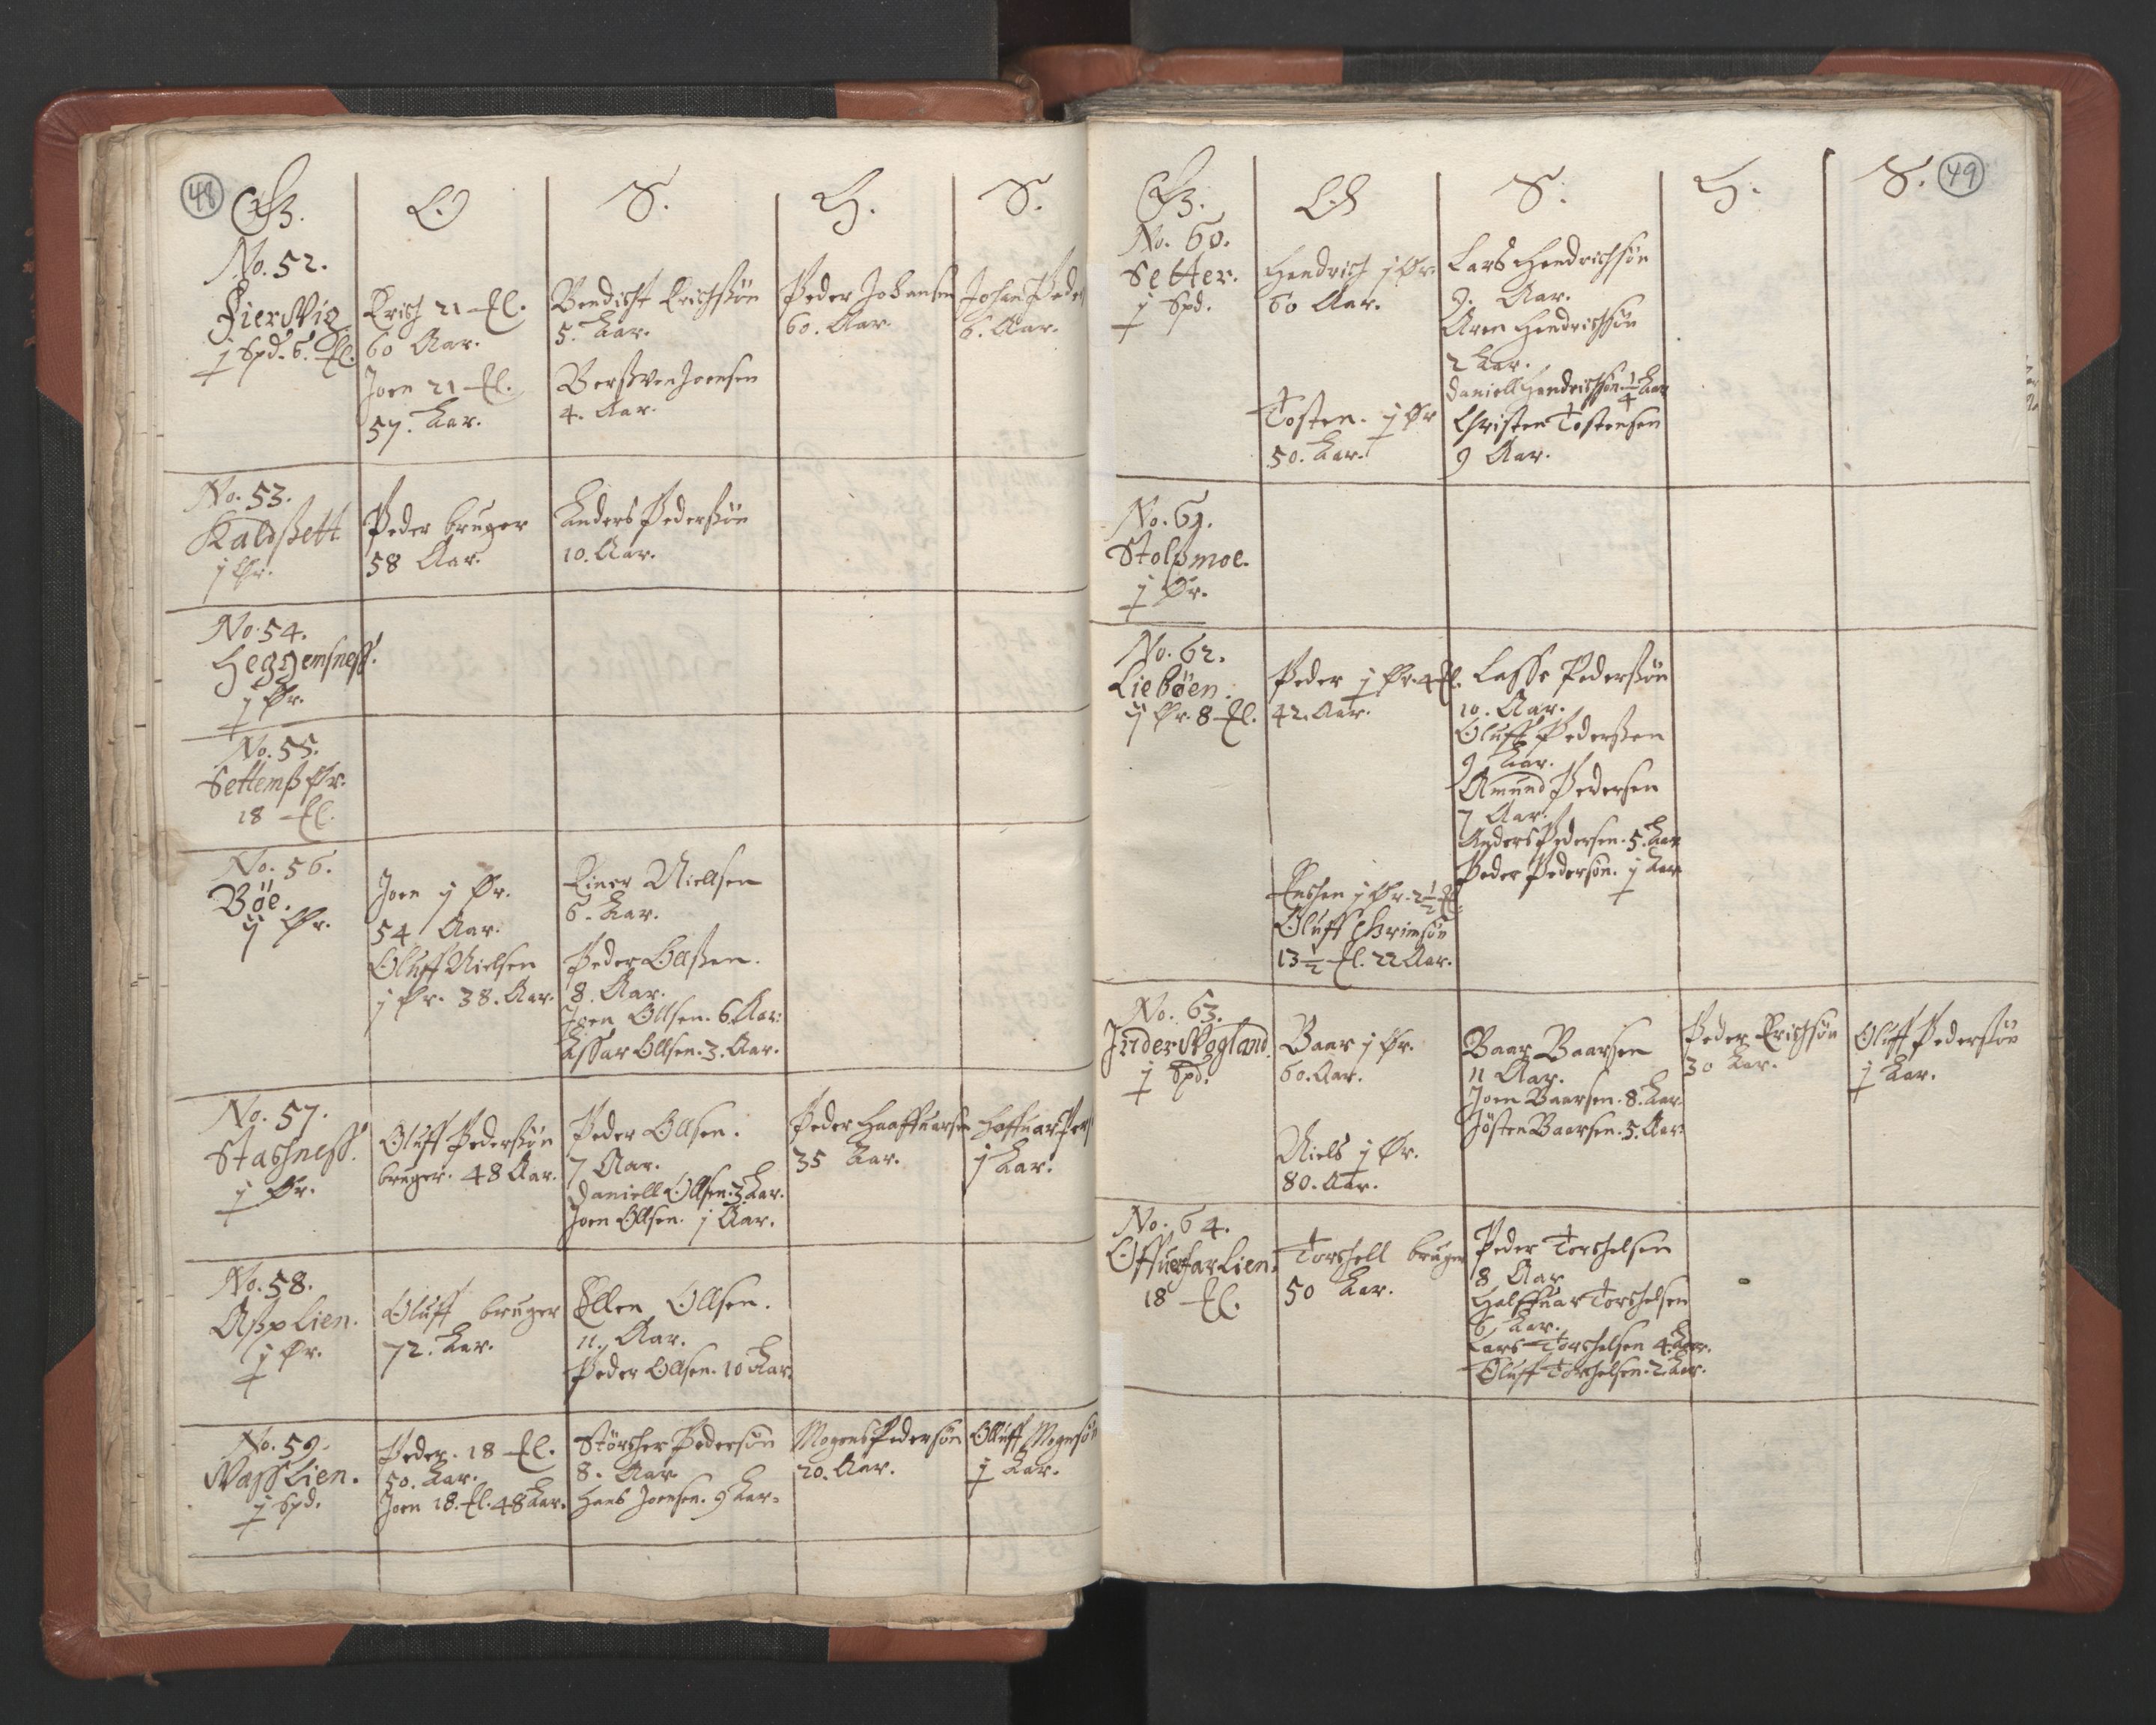 48
No. 52.
Fierwig
j Spd. 6. #l.
Erich 21 #l.
60 Aar.
Joen 21 #l.
57. Aar.
Bendicht Erichsøn
5. Aar.
Joensen
4. Aar.
Peder Johansen
60. Aar.
Johan Peder
6. Aar.
No. 53.
Kaldßett
j Ør.
Peder bruger
58 Aar.
Anders Pederßøn
10. Aar.
No. 54.
Heggemsneß.
j Ør.
No. 55.
Settemß Ør.
18 #l.
No. 56.
Bøe.
ij Ør.
Joen j Ør.
54 Aar.
Oluff Nielsen
j Ør. 38. Aar.
Einer Niellsen
6. Aar.
Peder Ollßen.
8. Aar.
Joen Ollsen. 6. Aar.
Assar Ollsen. 3. Aar.
No. 57.
Stachneß.
j Ør.
Oluff Pederßøn
bruger. 48 Aar.
Peder Ollsen.
7 Aar.
Daniell Ollsen. 3 Aar.
Joen Ollsen. j Aar.
Peder Haaffuarsen
35 Aar.
Haffuar Pers
j Aar.
No. 58.
Aßplien.
j Ør.
Oluff bruger
72. Aar.
Ellen Ollsen.
11. Aar.
Peder Ollsen. 10 Aar.
No. 59.
Waßlien.
j Spd.
Peder. 18 #l.
50. Aar.
Joen 18. #l. 48 Aar.
Størcher Pedersøn
8. Aar
Hans Joensen. 9 Aar.
Mogens Pedersøn
20. Aar.
Olluff Mognsøn
j Aar.
49
No. 60.
Setter.
j Spd.
Hendrich j Ør.
60 Aar.
Tosten. j Ør
50. Aar.
Lars Hendrichsøn
9. Aar.
Aren Hendrichsøn
2 Aar.
Daniell Hendrichsøn. 1/4 Aar
Christen Tostensen
9 Aar.
No. 61.
Stolpmoe.
j Ør.
No. 62.
Liebøen.
ij Ør. 8 #l.
Peder j Ør. 4 #l.
42. Aar.
Enchen j Ør. 2 1/2 #l.
Oluff
13 1/2 #l. 22 Aar.
Lasse Pederßøn
10. Aar.
Oluff Pederßen
9 Aar.
Amund Pedersen
7 Aar.
Anders Pedersen. 5. Aar
Peder Pedersøn. j Aar
No. 63.
Inder Skogland
j Spd.
Baar j Ør.
60. Aar.
Niels j Ør.
80. Aar.
Baar Baarsen
11 Aar.
Joen Baarsen. 8. Aar.
Jøsten Baarsen. 5. Aar.
Peder Erichsøn
30 Aar.
Oluff Pederßøn
j Aar.
No. 64.
Offuerfarlien.
18 #l.
Torchell bruger
50 Aar.
Peder Torchelsen
8 Aar
Halffuar Torchelsen
6 Aar.
Lars Torchelsen 4 Aar.
Oluff Torchelsen. 2 Aar.